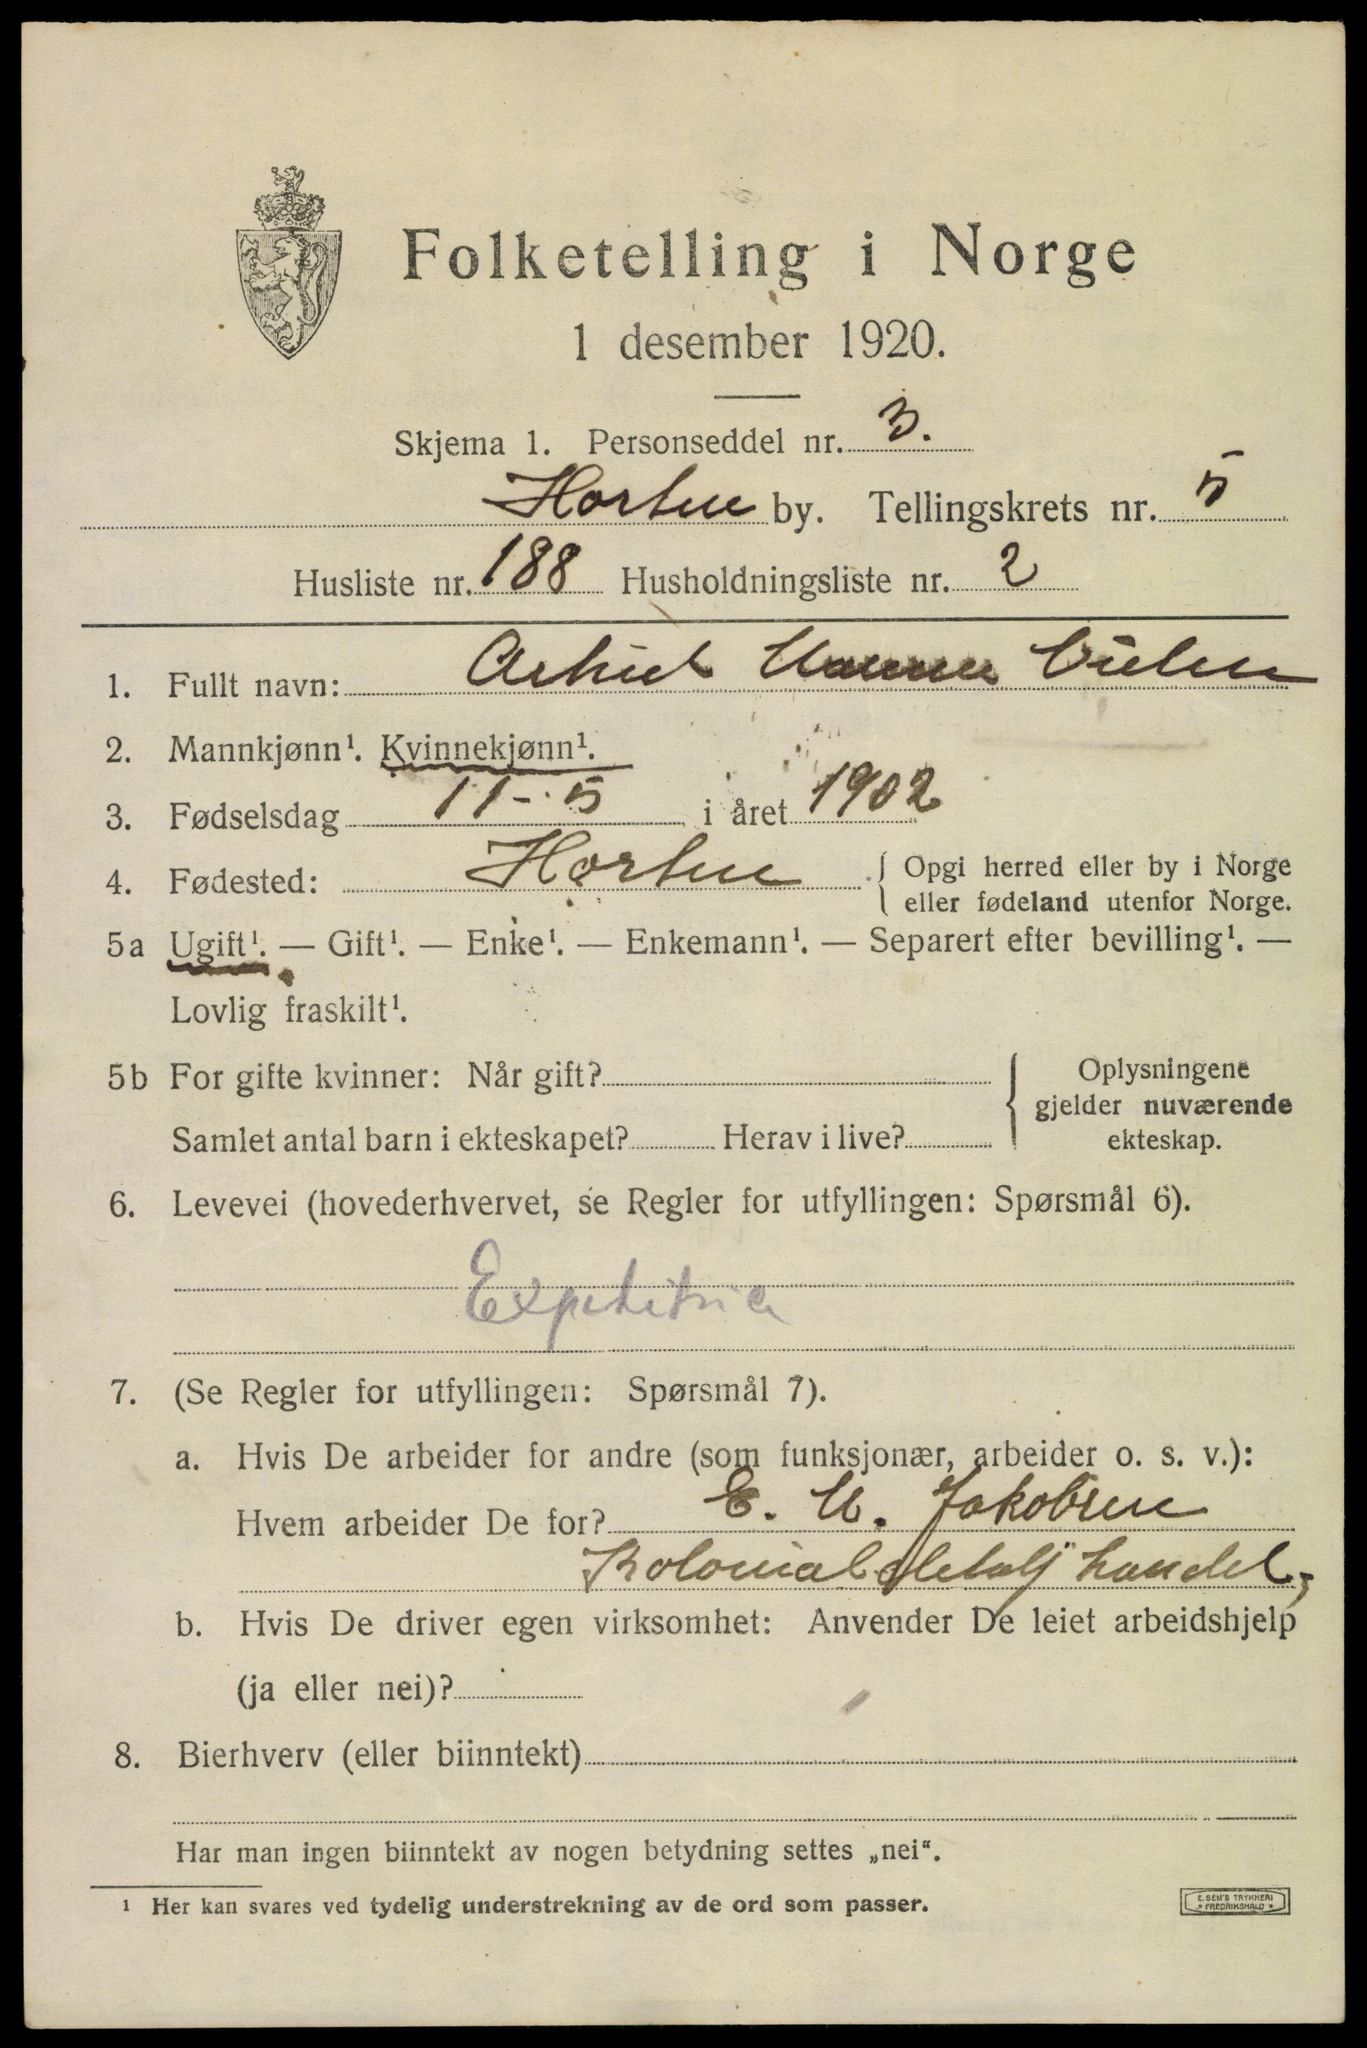 Folketelling i Norge
1 desember 1920.
Skjema 1. Personseddel nr. 3.
Horten by. Tellingskrets nr. 5
Husliste nr. 188 Husholdningsliste nr. 2
1. Fullt navn:
2. Mannkjønn¹. Kvinnekjønn¹.
3. Fødselsdag 11-5 i året 1902
4. Fødested: Horten { Opgi herred eller by i Norge
eller fødeland utenfor Norge.
5a Ugift¹. — Gift¹. — Enke¹. — Enkemann¹. — Separert efter bevilling¹. —
Lovlig fraskilt¹.
5b For gifte kvinner: Når gift?
Samlet antal barn i ekteskapet? Herav i live?
{ Oplysningene
gjelder nuværende
ekteskap.
6. Levevei (hovederhvervet, se Regler for utfyllingen: Spørsmål 6).
Expeditrice
7. (Se Regler for utfyllingen: Spørsmål 7).
a. Hvis De arbeider for andre (som funksjonær, arbeider o. s. v.):
Hvem arbeider De for? E. M. Jakobsen
Kolonial detalj handel,
b. Hvis De driver egen virksomhet: Anvender De leiet arbeidshjelp
(ja eller nei)?
8. Bierhverv (eller biinntekt)
Har man ingen biinntekt av nogen betydning settes „nei“.
¹ Her kan svares ved tydelig understrekning av de ord som passer.
E. SEM'S TRYKKERI
* FREDRIKSHALD *